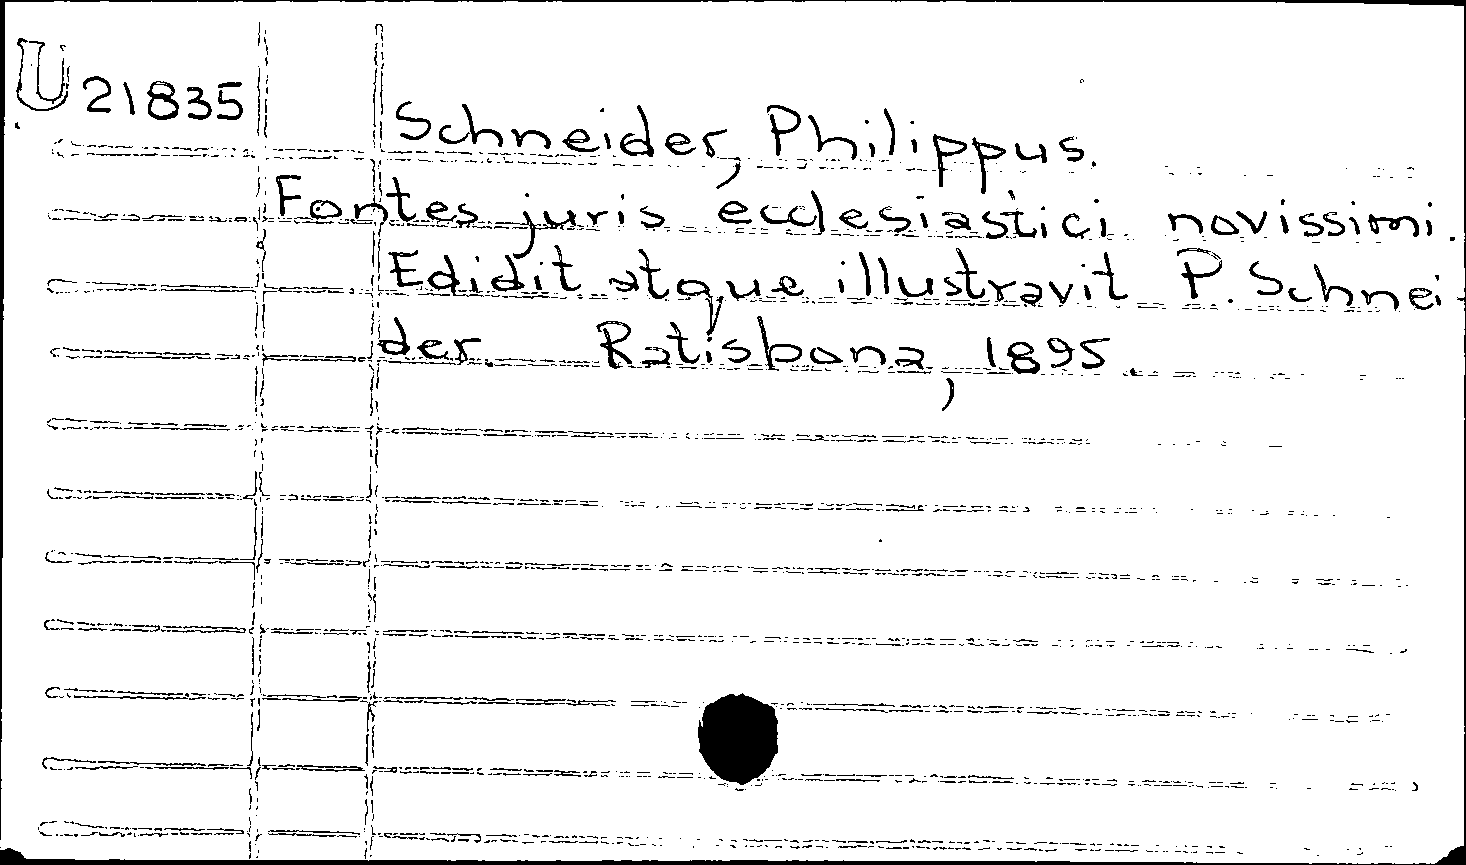 U 21835
Schneider, Philippus.
Fontes juris ecclesiastici novissimi.
Edidit atque illustravit P. Schnei-
der. Ratisbona, 1895.